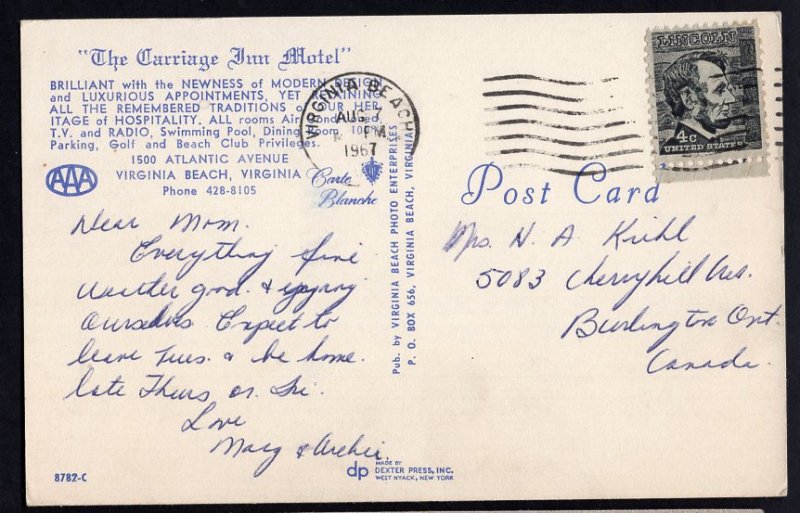 "The Carriage Inn Motel"
BRILLIANT with the NEWNESS of MODERN DESIGN
and LUXURIOUS APPOINTMENTS, YET RETAINING
ALL THE REMEMBERED TRADITIONS OF OUR HER-
ITAGE of HOSPITALITY. ALL rooms Air
T.V. and RADIO, Swimming Pool, Dining Room, 100%
Parking, Golf and Beach Club Privileges.
1500 ATLANTIC AVENUE
VIRGINIA BEACH, VIRGINIA
Phone 428-8105
AAA
Carte
Blanche
VIRGINIA BEACH
AUG 7
PM
1967
LINCOLN
4c
UNITED STATES
Post Card
Dear Mom.
Everything fine
weather good. & enjoying
ourselves Expect to
leave Tues. & be home.
late Thurs or Fri.
Love
Mary & Archie.
Pub. by VIRGINIA BEACH PHOTO ENTERPRISES
P. O. BOX 656, VIRGINIA BEACH, VIRGINIA
Mrs. H. A. Kiehl
5083 Cherryhill Cres.
Burlington Ont.
Canada.
8782-C
dp MADE BY
DEXTER PRESS, INC.
WEST NYACK, NEW YORK